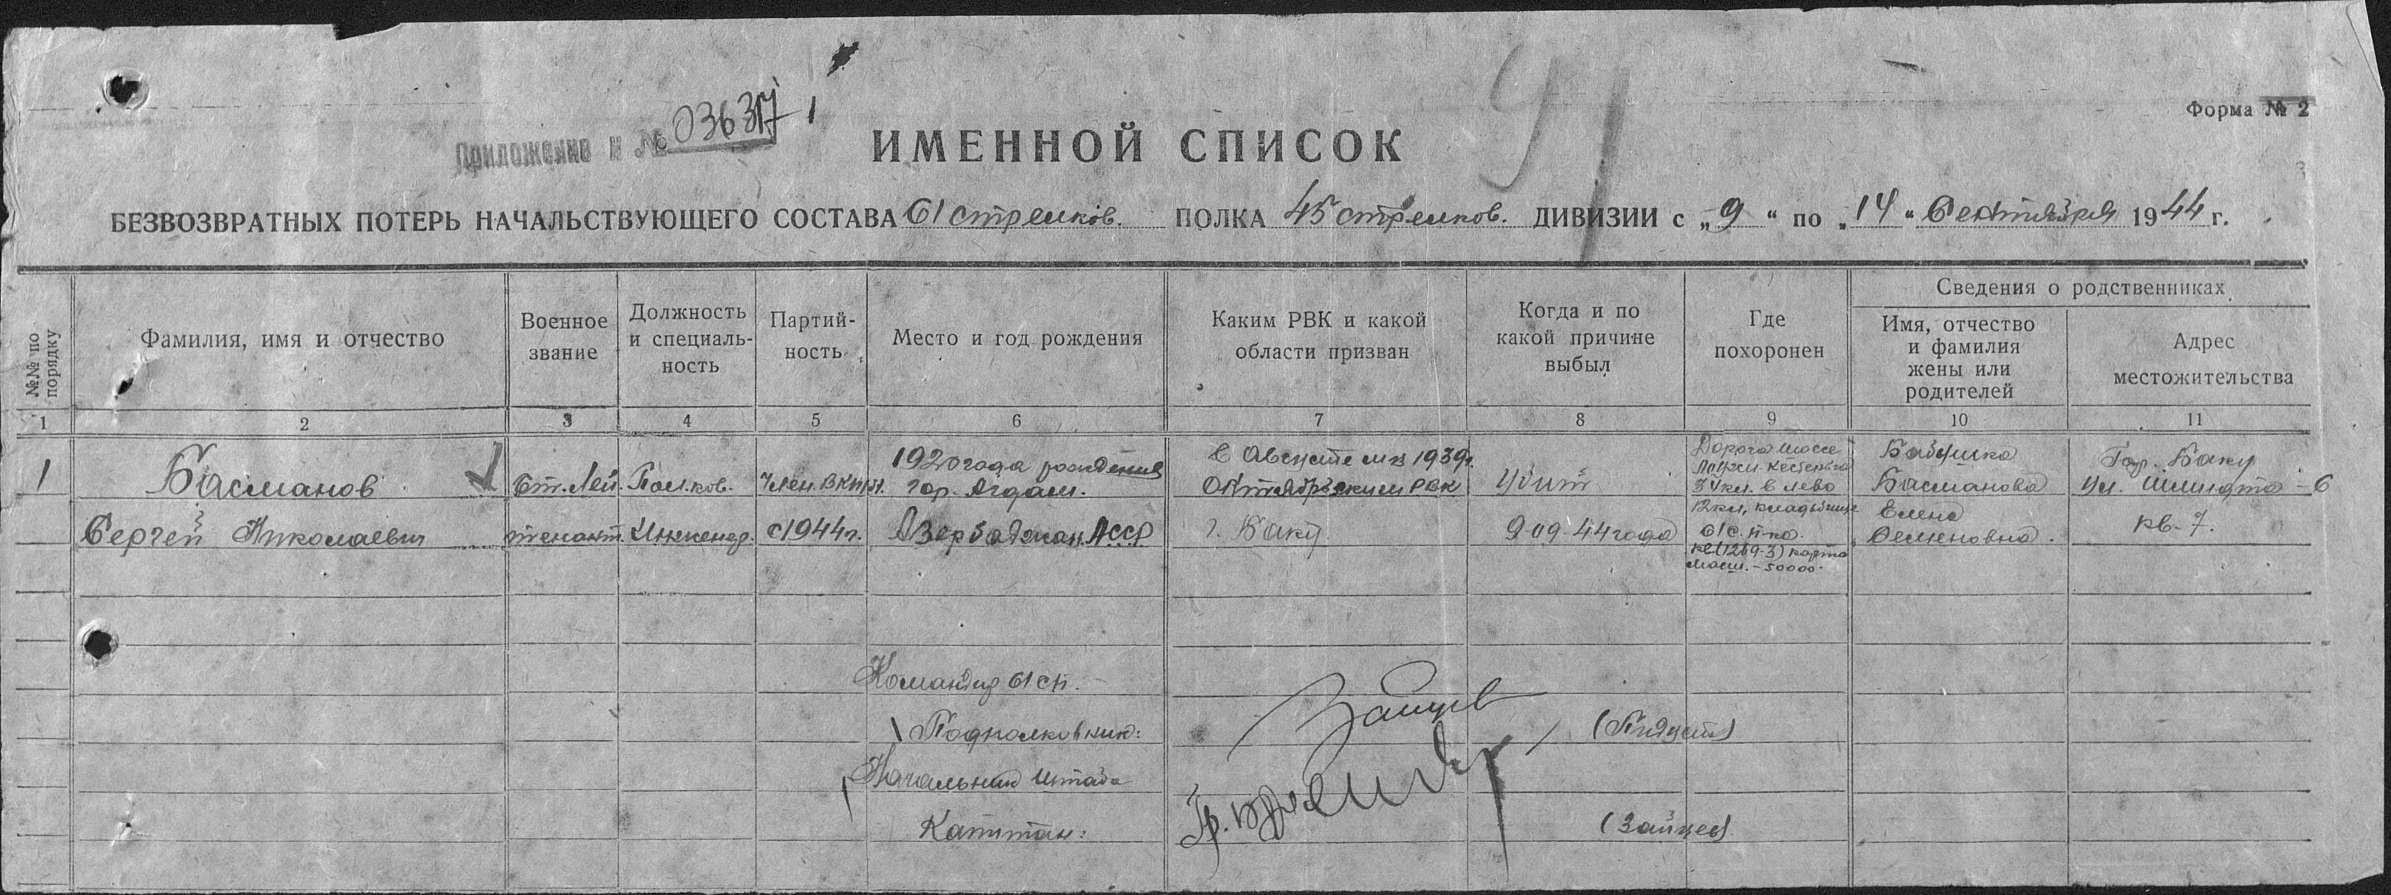 Форма № 2
Приложение к № 036317
ИМЕННОЙ СПИСОК
БЕЗВОЗВРАТНЫХ ПОТЕРЬ НАЧАЛЬСТВУЮЩЕГО СОСТАВА 61 стрелков. ПОЛКА 45 стрелков. ДИВИЗИИ с „9“ по „14“ Сентября 1944 г.
№№ по порядку
Фамилия, имя и отчество
Военное звание
Должность и специаль-ность
Партий-ность
Место и год рождения
Каким РВК и какой области призван
Когда и по какой причине выбыл
Где похоронен
Сведения о родственниках
Имя, отчество и фамилия жены или родителей
Адрес местожительства
1 2 3 4 5 6 7 8 9 10 11
1
Басманов
Сергей Николаевич
Ст. Лей
тенант.
Полков.
Инженер.
Член ВКП(б).
с 1944 г.
1920 года рождения
гор. Агдам.
Азербаджан АССР
в Августе м-ц 1939 г.
Октябрьским РВК
г. Баку
Убит
9.09.44 года
Дорога шоссе
3 км. в лево
12 км, кладбище
61 с. п-ка.
карта
Масш. - 50000.
Бабушка
Басманова
Елена
Семеновна.
Гор. Баку
ул. Шмидта - 6
кв. 7.
Командир 61 сп.
Подполковник:
Зайцев
Начальник штаба
Капитан:
(Зайцев)